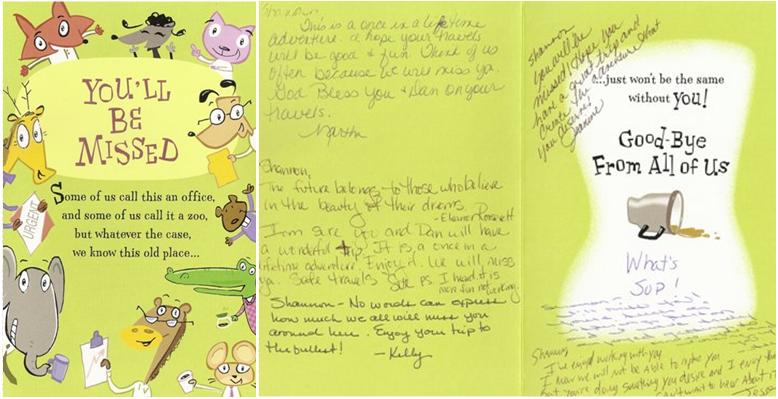 YOU'LL
BE
MISSED
Some of us call this an office,
and some of us call it a zoo,
but whatever the case,
we know this old place...
URGENT
Shannon,
This is a once in a lifetime
adventure. I hope your travels
will be good & fun. Think of us
often because we will miss ya.
God Bless You & Dan on your
travels.
Martha
Shannon,
The future belongs to those who believe
in the beauty of their dreams.
-Eleanor Roosevelt
I am sure you and Dan will have
a wonderful trip. It is a once in a
lifetime adventure. Enjoy it. We will miss
ya. Safe travels Sue PS. I heard it is
more fun not working.
Shannon - No words can express
how much we all will miss you
around here. Enjoy your trip to
the fullest!
- Kelly
Shannon
you will be
missed! I hope you
have a great trip and
Create the adventure that
you deserve!
...just won't be the same
without you!
Good-Bye
From All of Us
What's
SUP!
Shannon
I've enjoyed working with you
I know we will not be Able to replace you
But you're doing something you desire and I enjoy
Can't wait to hear About it